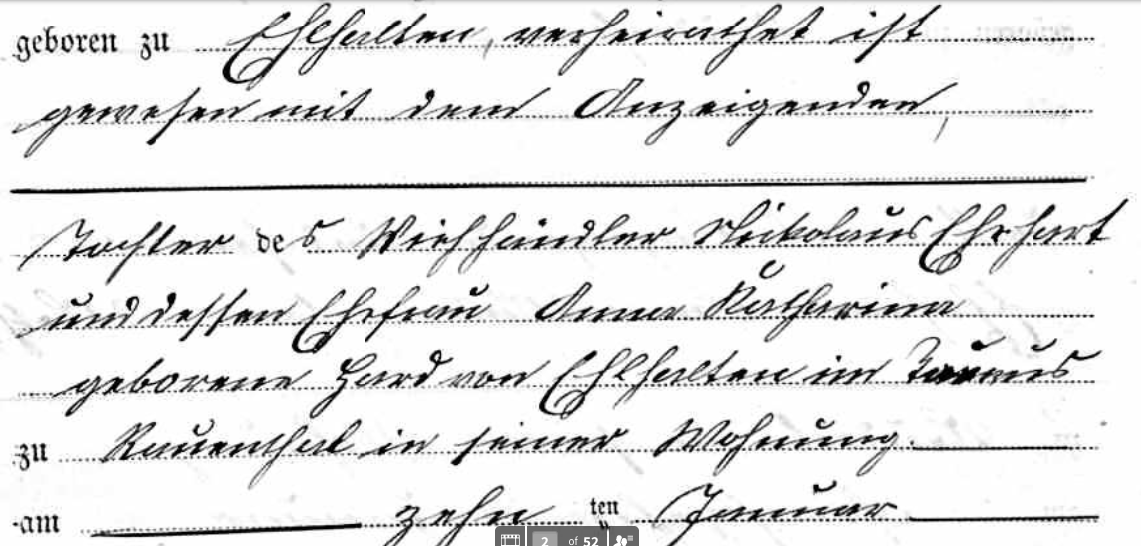 geboren zu Ehlhalten, verheirathet ist
gewesen mit dem Anzeigenden,
Tochter des Viehhändler Nikolaus Ehrhart
und dessen Ehefrau Anna Katharina
geborene Hard von Ehlhalten im Taunus
zu Rauenthal in seiner Wohnung.
am zehn ten Januar
2 of 52